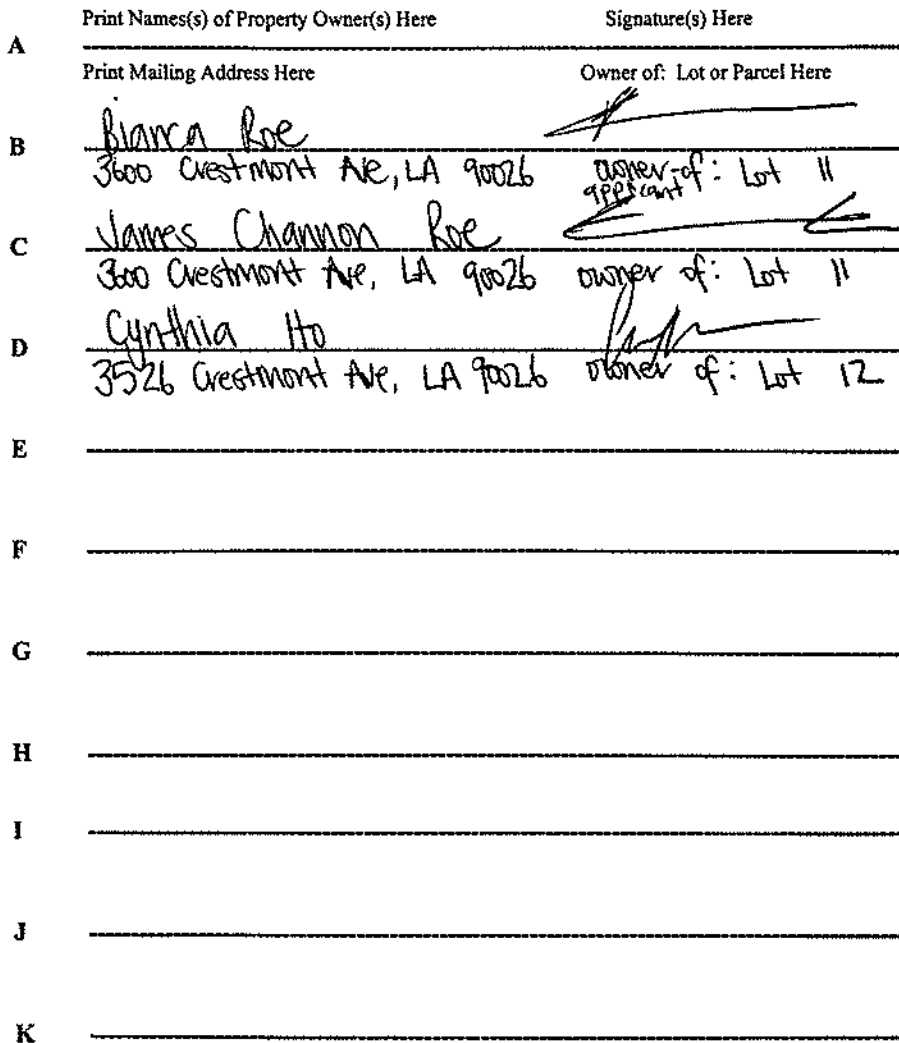 Print Names(s) of Property Owner(s) Here Signature(s) Here
A
Print Mailing Address Here Owner of: Lot or Parcel Here
Bianca Roe
B
3600 Crestmont Ave, LA 90026 owner of: Lot 11
applicant
James Channon Roe
C
3600 Crestmont Ave, LA 90026 owner of: Lot 11
Cynthia Ito
D
3526 Crestmont Ave, LA 90026 owner of: Lot 12
E
F
G
H
I
J
K